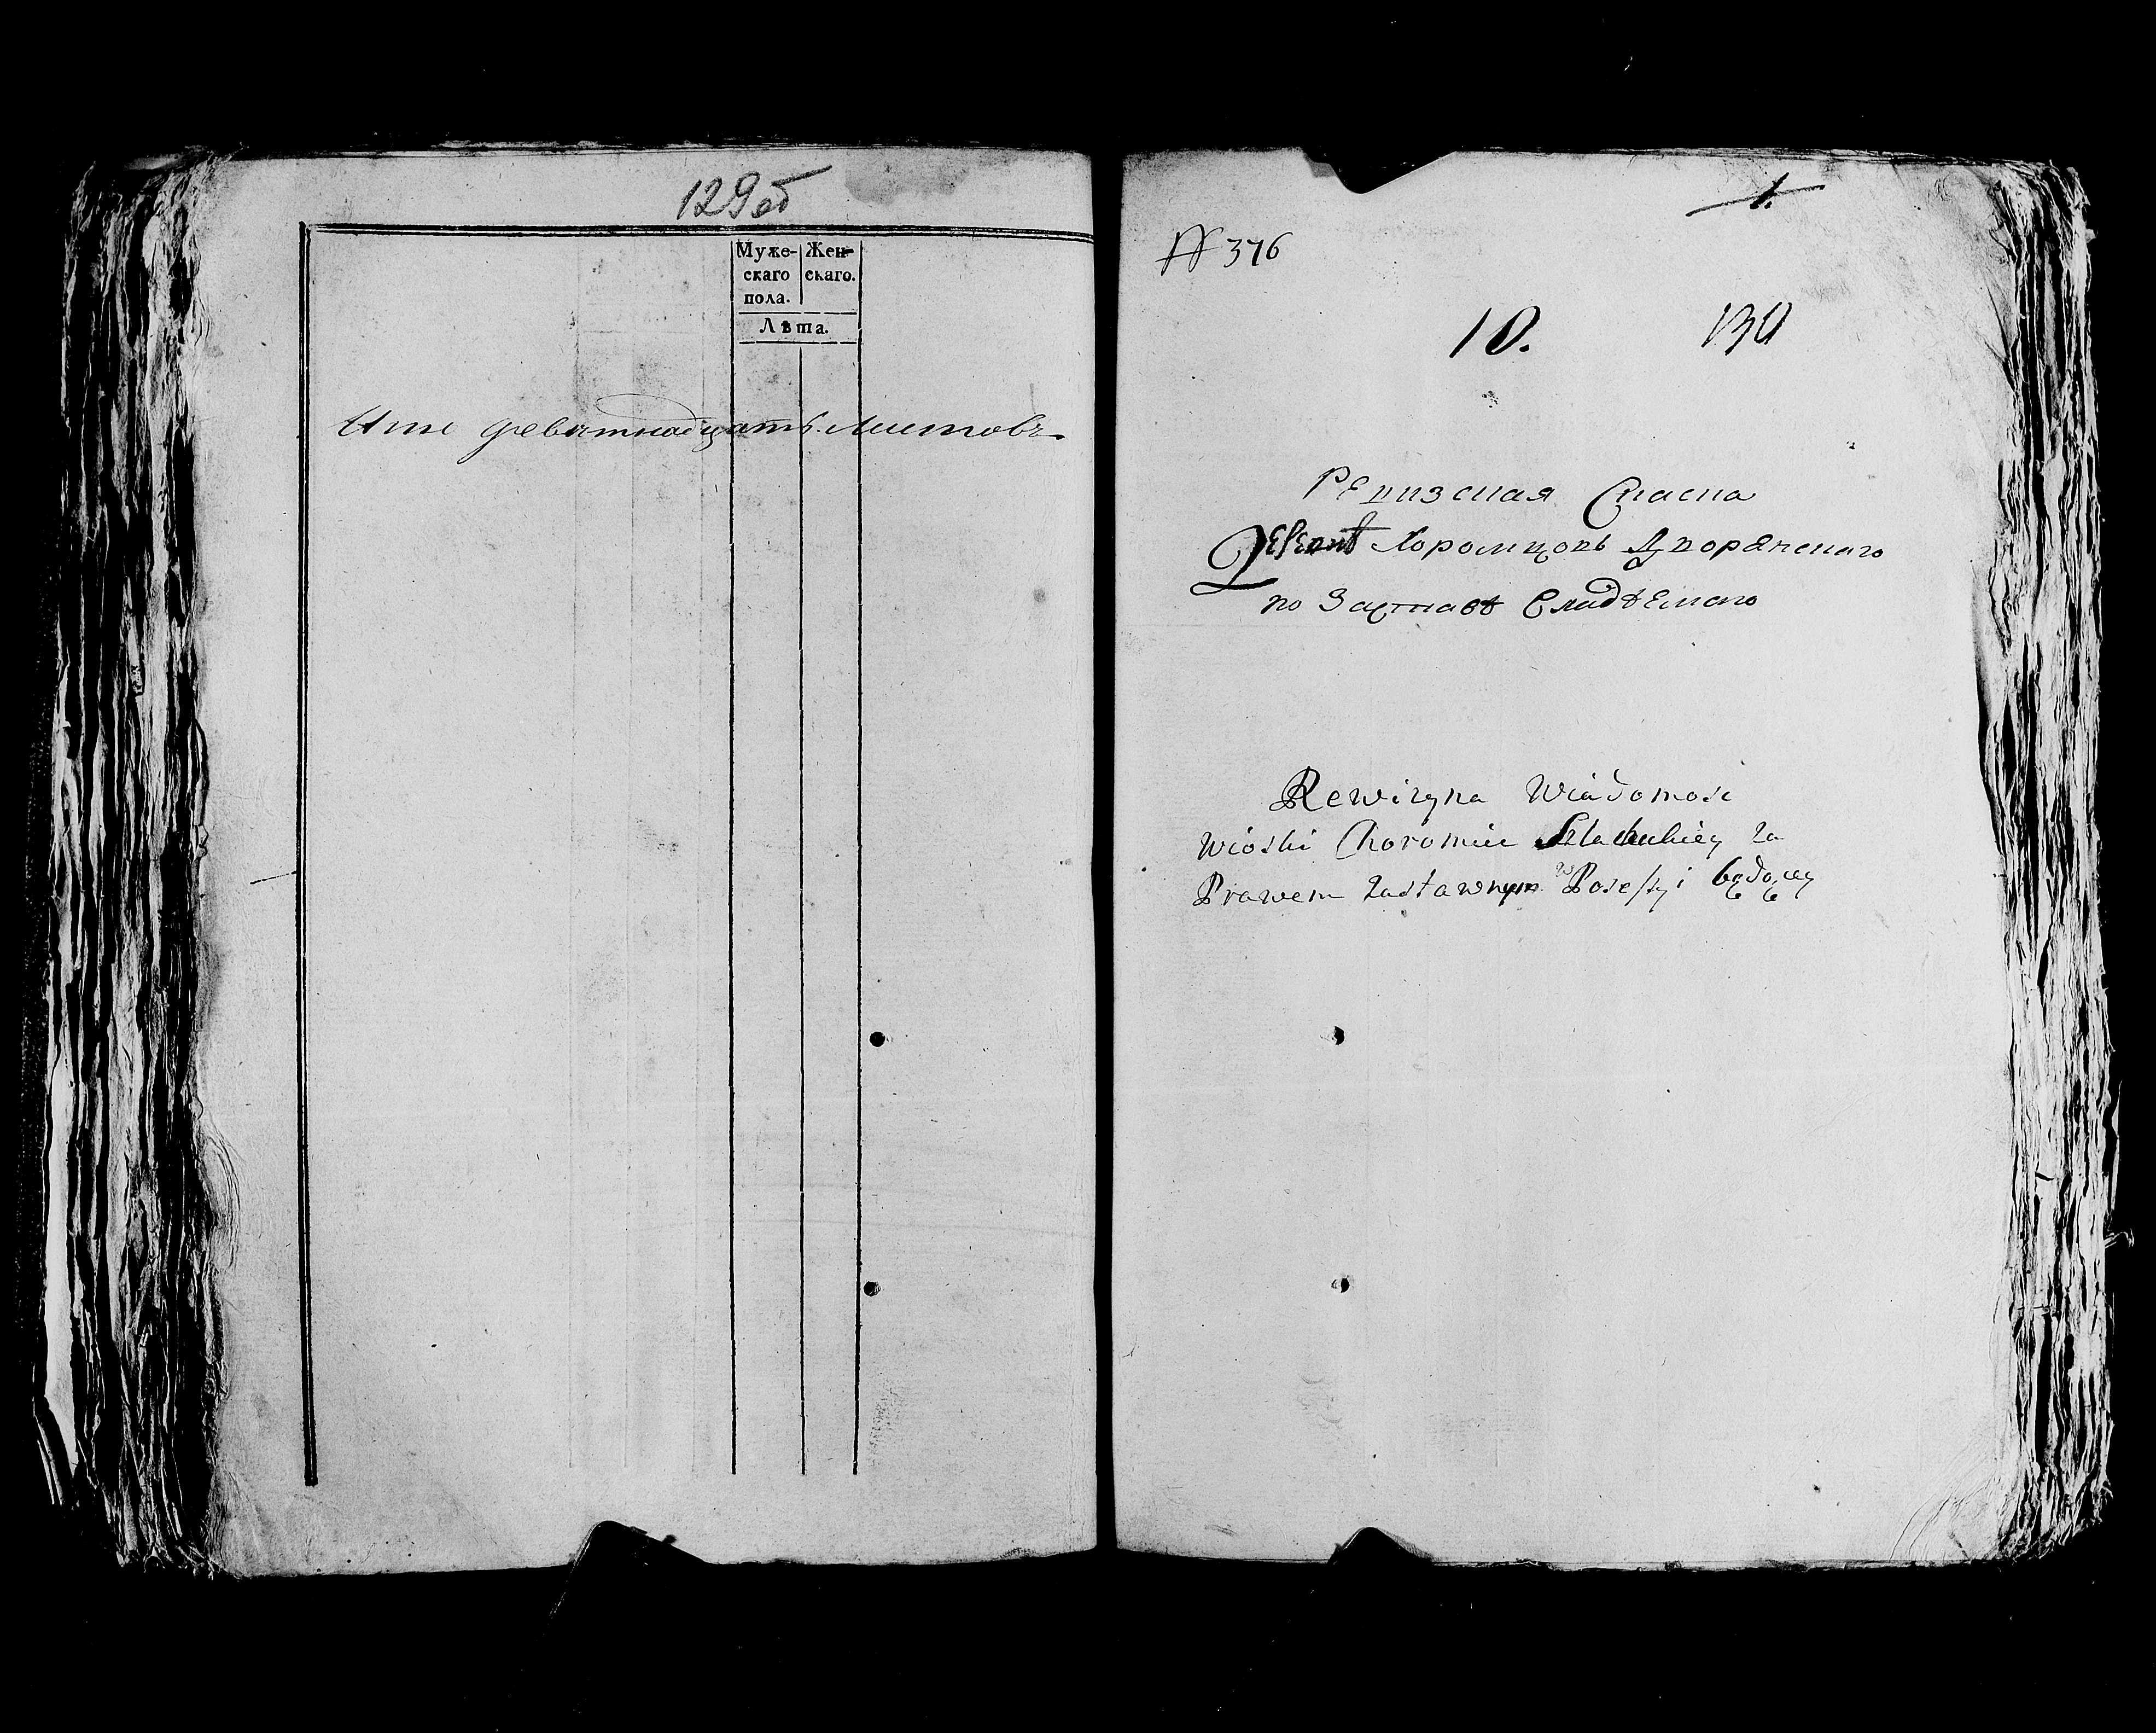 129об
Муже- Жен-
скаго скаго.
пола.
Лѣта.
девятнадцать листовъ
1.
N 376
10. 130
Ревизская Сказка
Хоромцовъ Дворянскаго
по Заставѣ Владѣемаго
Rewizyna Wiadomosc
Wioski Choromiec Szlacheckiey za
Prawem zastawnym w Possesyi będącey